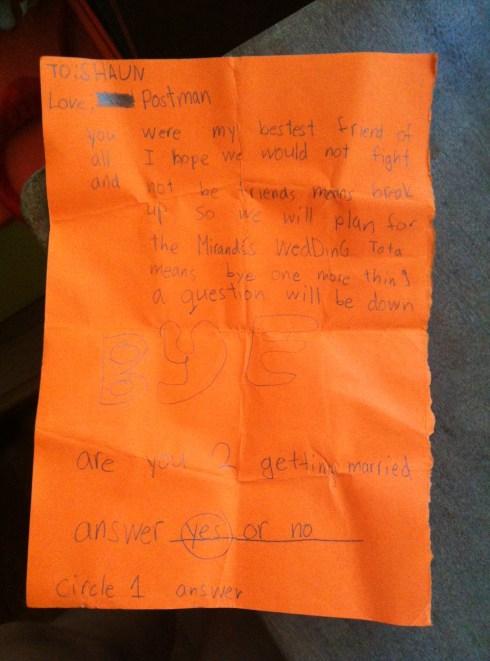 TO: SHAUN
Love, Postman
you were my bestest friend of
all I hope we would not fight
and not be friends means break
up so we will plan for
the Miranda's WedDinG Tata
means bye one more thing
a question will be down
BYE
are you 2 getting married
answer yes or no
circle 1 answer